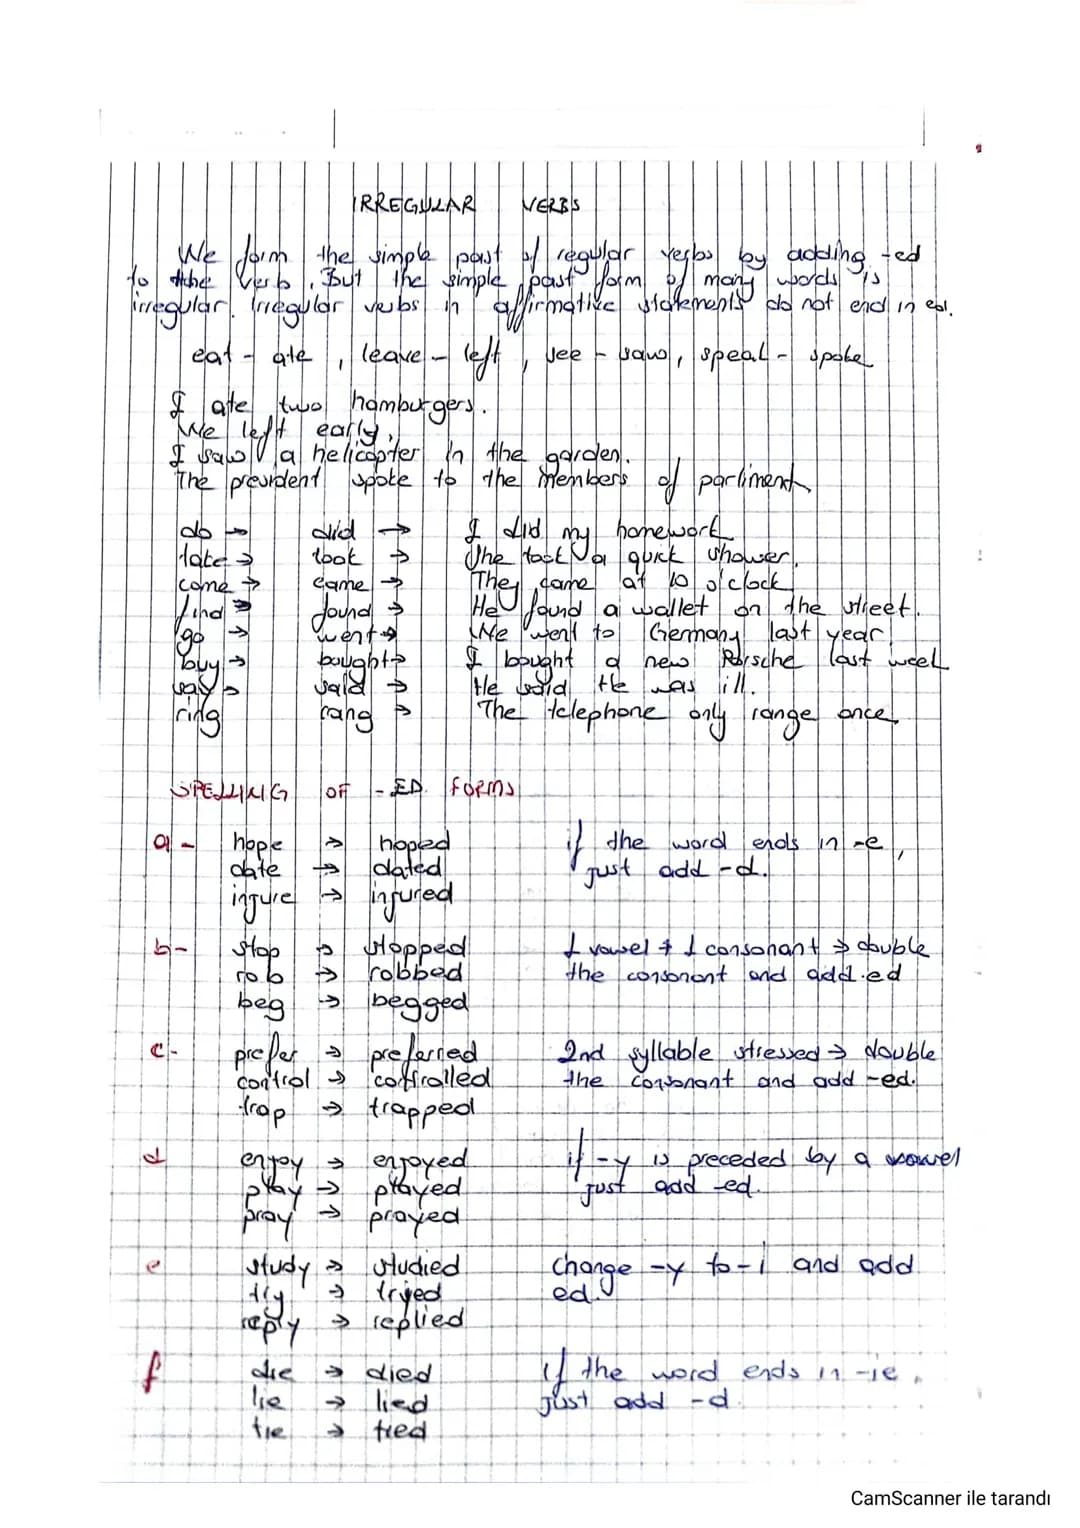 IRREGULAR VERBS
We form the simple past of regular verbs by adding -ed
to the verb. But the simple past form of many words is
irregular. Irregular verbs in affirmative statements do not end in ed.
eat - ate, leave - left, see - saw, speak - spoke
I ate two hamburgers.
We left early.
I saw a helicopter in the garden.
The president spoke to the members of parliment
do → did → I did my homework
take → took → She took a quick shower.
come → came → They came at 10 o'clock
find → found → He found a wallet on the street.
go → went → We went to Germany last year.
buy → bought → I bought a new Porsche last week
say → said → He said He was ill.
ring rang → The telephone only range once.
SPELLING OF -ED FORMS
a - hope → hoped if the word ends in -e,
date → dated just add -d.
injure → injured
b- stop → stopped 1 vowel + 1 consonant → double
rob → robbed the consonant and add -ed
beg → begged
c- prefer → preferred 2nd syllable stressed → double
control → controlled the consonant and add -ed.
trap → trapped
d enjoy → enjoyed if -y is preceded by a vowel
play → played just add -ed.
pray → prayed
e study → studied change -y to -i and add
try → tryed ed.
reply → replied
f die → died if the word ends in -ie,
lie → lied just add -d
tie → tied
CamScanner ile tarandı